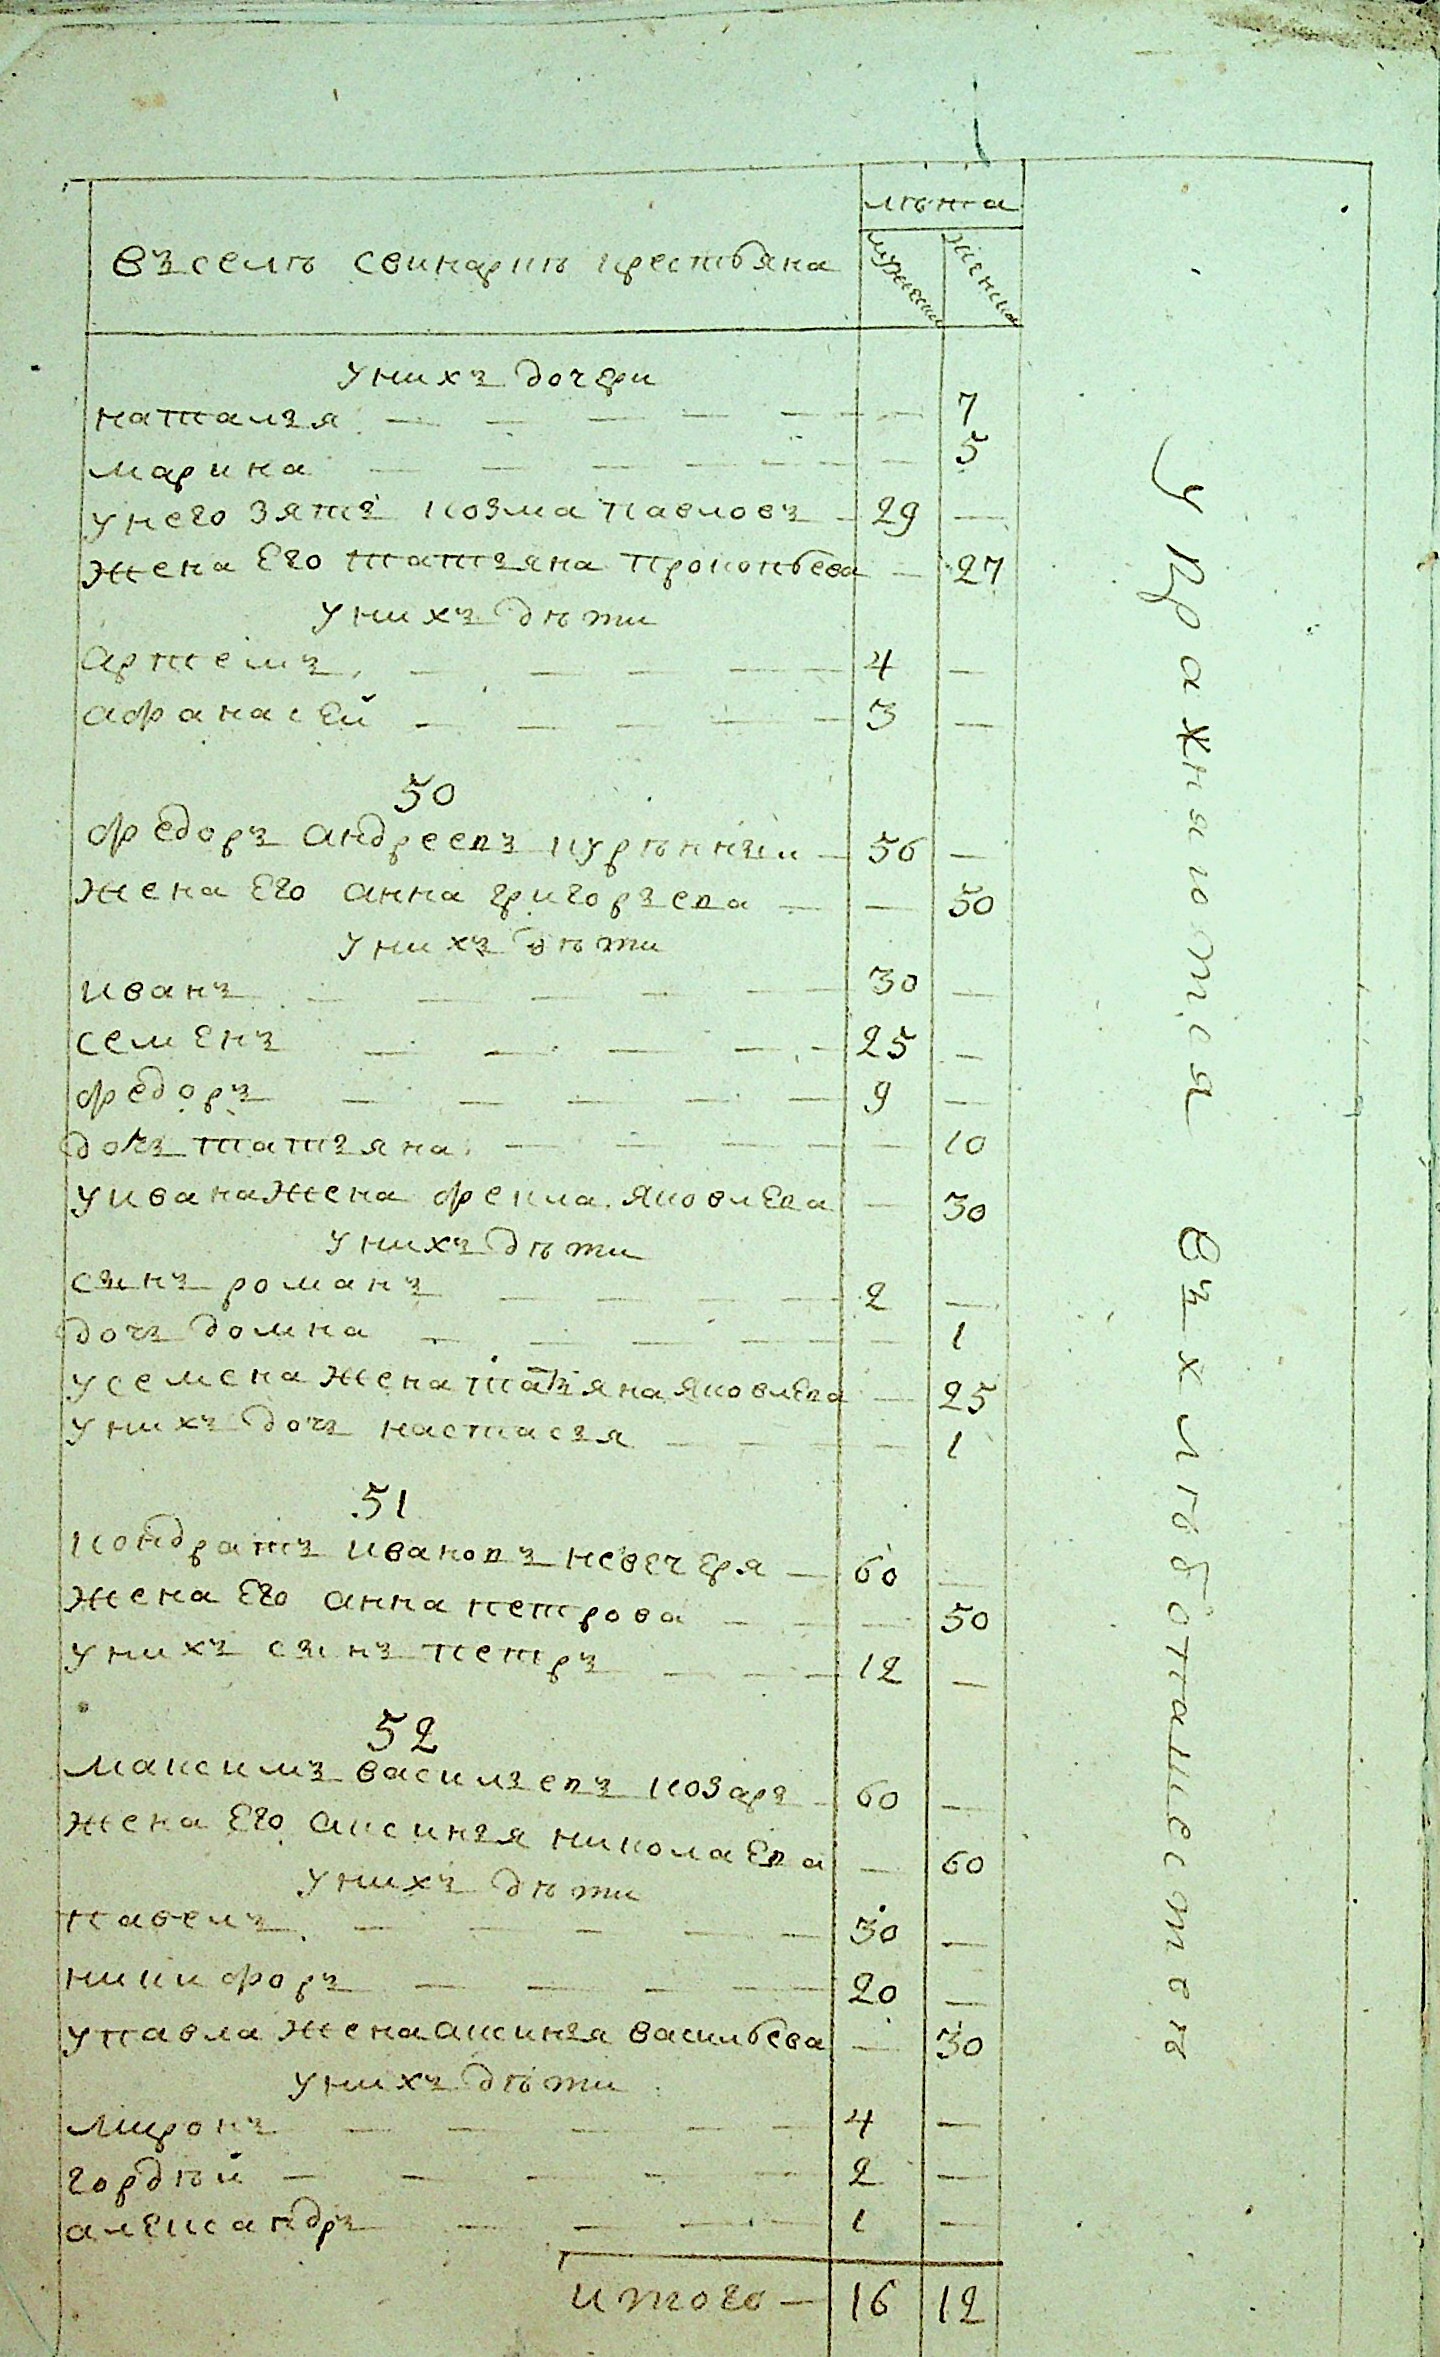 лѣта
въ селѣ свинарнѣ крестьяна
мужеска
женска
у нихъ дочери
наталья — 7
марина — 5
у него зять козма павловъ — 29 —
жена Его татьяна прокопьева — 27
у нихъ дѣти
артемъ — 4 —
афанасей — 3 —
50
федоръ андреевъ курѣнный — 56 —
жена Его анна григорьева — — 50
у нихъ дѣти
иванъ — 30 —
семенъ — 25 —
федоръ — 9 —
дочь татьяна — — 10
у ивана жена фекла яковлева — 30
у нихъ дѣти
сынъ романъ — 2 —
дочь домна — — 1
у семена жена татьяна яковлева — 25
у нихъ дочь настасья — — 1
51
кондратъ ивановъ невечеря — 60 —
жена Его анна петрова — — 50
у нихъ сынъ петръ — 12 —
52
максимъ васильевъ козарь — 60 —
жена Его аксинья николаева — 60
у нихъ дѣти
павелъ — 30 —
никифоръ — 20 —
у павла жена аксинья васильева — 30
у нихъ дѣти
миронъ — 4 —
гордѣй — 2 —
александръ — 1 —
итого — 16 12
упражняются въ хлѣбопашествѣ